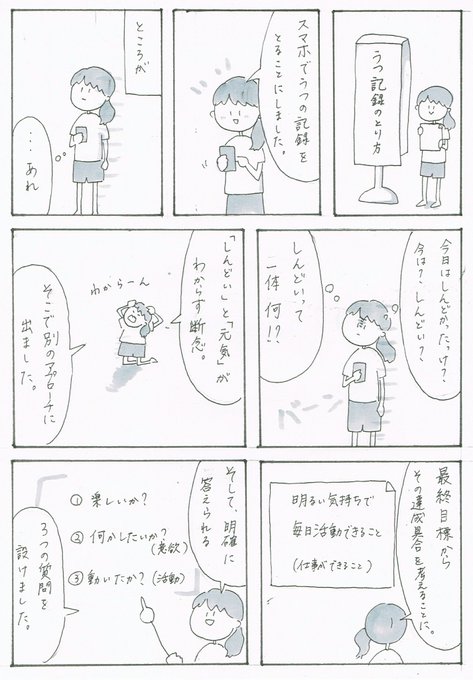 うつ記録のとり方
スマホでうつの記録を
とることにしました。
ところが
…あれ
今日はしんどかったっけ?
今は?しんどい?
しんどいって
一体何!?
バーン
「しんどい」と「元気」が
わからず断念。
わからーん
そこで別のアプローチに
出ました。
最終目標から
その達成具合を考えることに。
明るい気持ちで
毎日活動できること
(仕事ができること)
そして、明確に
答えられる
①楽しいか?
②何かしたいか?
(意欲)
③動いたか?(活動)
3つの質問を
設けました。